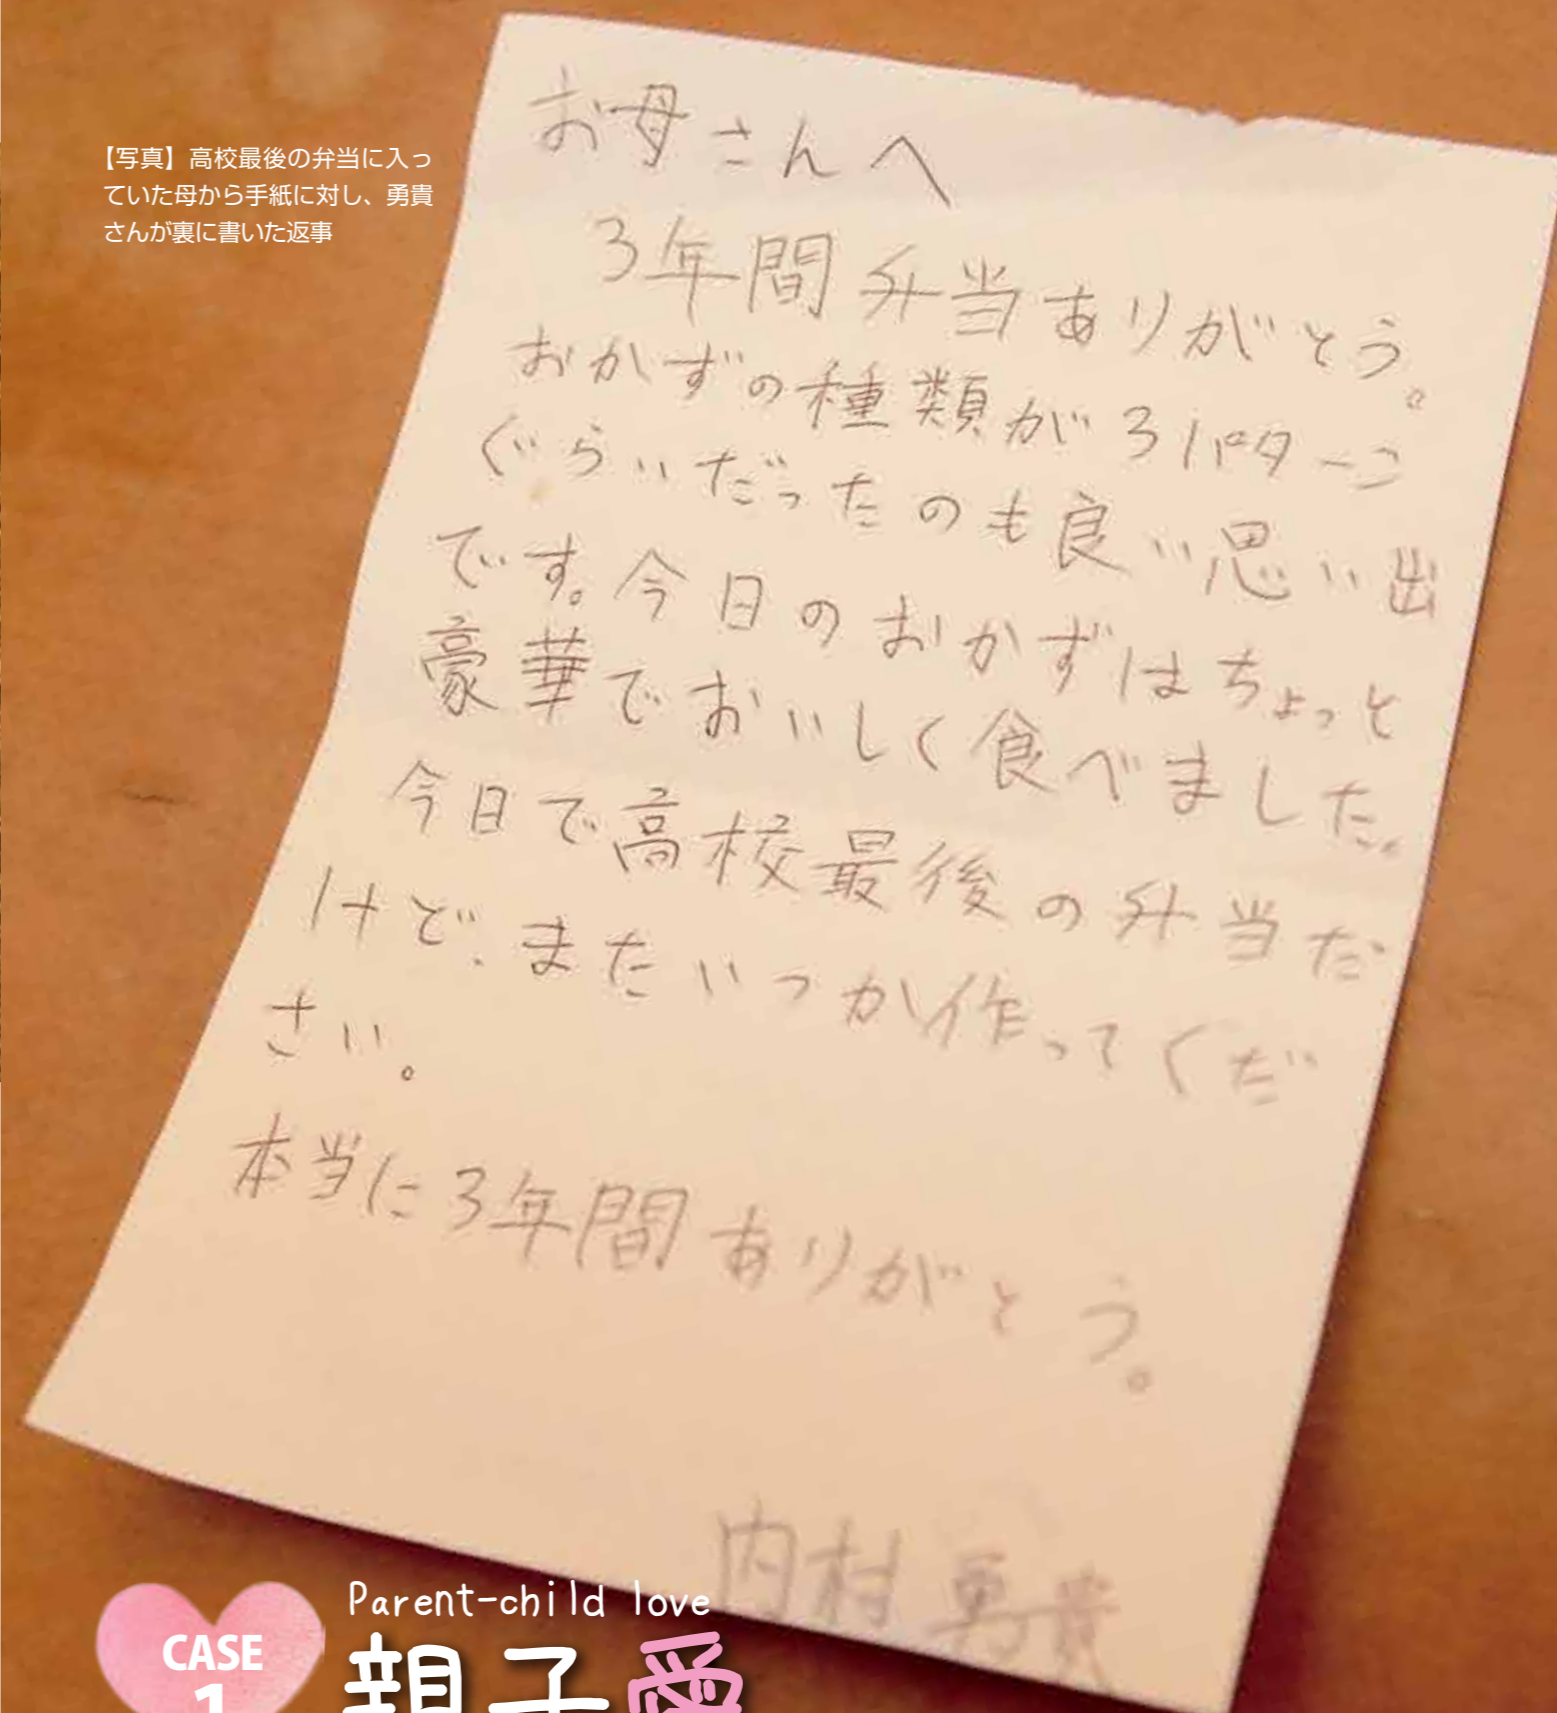 【写真】高校最後の弁当に入っ
ていた母から手紙に対し、勇貴
さんが裏に書いた返事
お母さんへ
3年間弁当ありがとう。
おかずの種類が3パターン
ぐらいだったのも良い思い出
です。今日のおかずはちょっと
豪華でおいしく食べました。
今日で高校最後の弁当だ
けど、またいつか作ってくだ
さい。
本当に3年間ありがとう。
内村勇貴
CASE
1
Parent-child love
親子愛